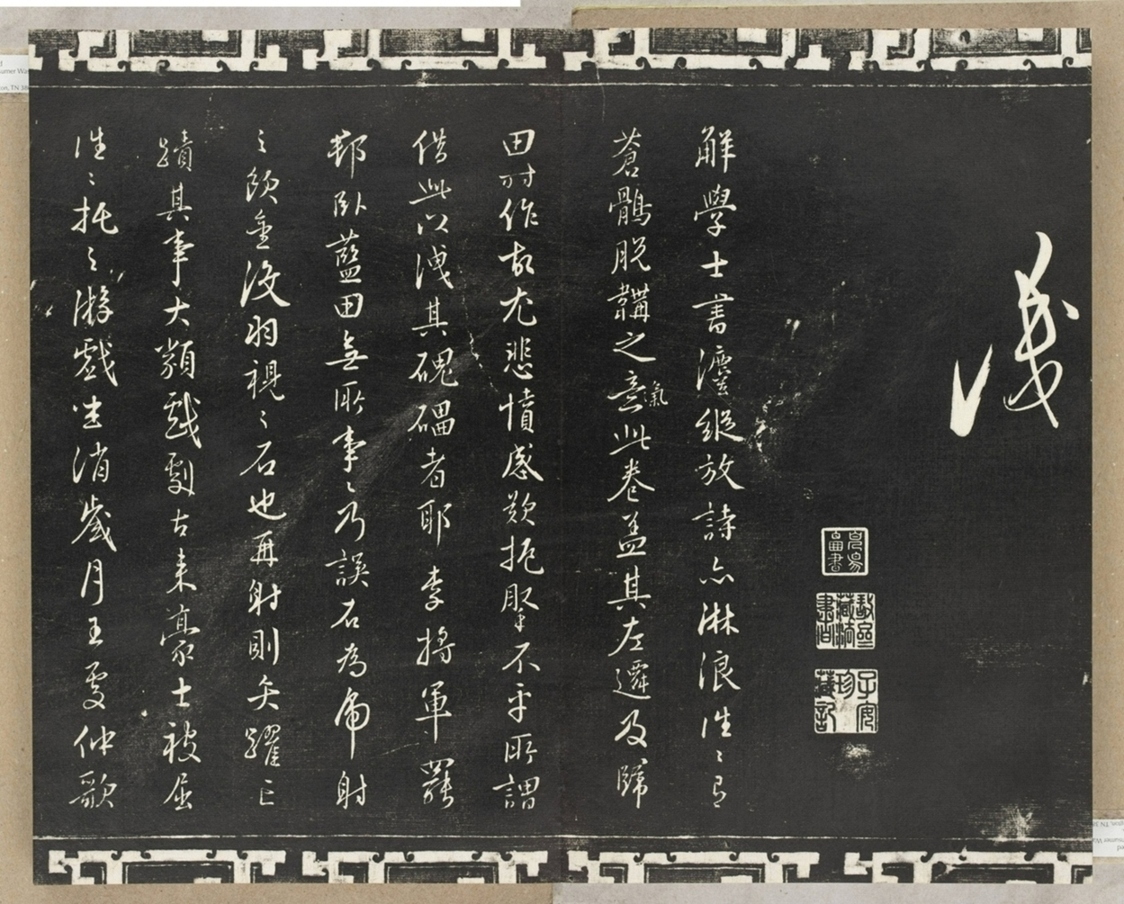 解學士書瀍縱放詩亦淋浪往〻有
蒼鶻脫韝之意氣此卷蓋其左遷及歸
田時作故尤悲憤感歎抱壓不平所謂
借此以洩其磈礧者耶李將軍罷
邨臥藍田無所事〻乃誤石為虎射
〻飲金沒羽視〻石也再射則矢躍〻
蹟其事大類戲劇古來豪士被屈
往〻托〻游戲坐消歲月王處仲歌